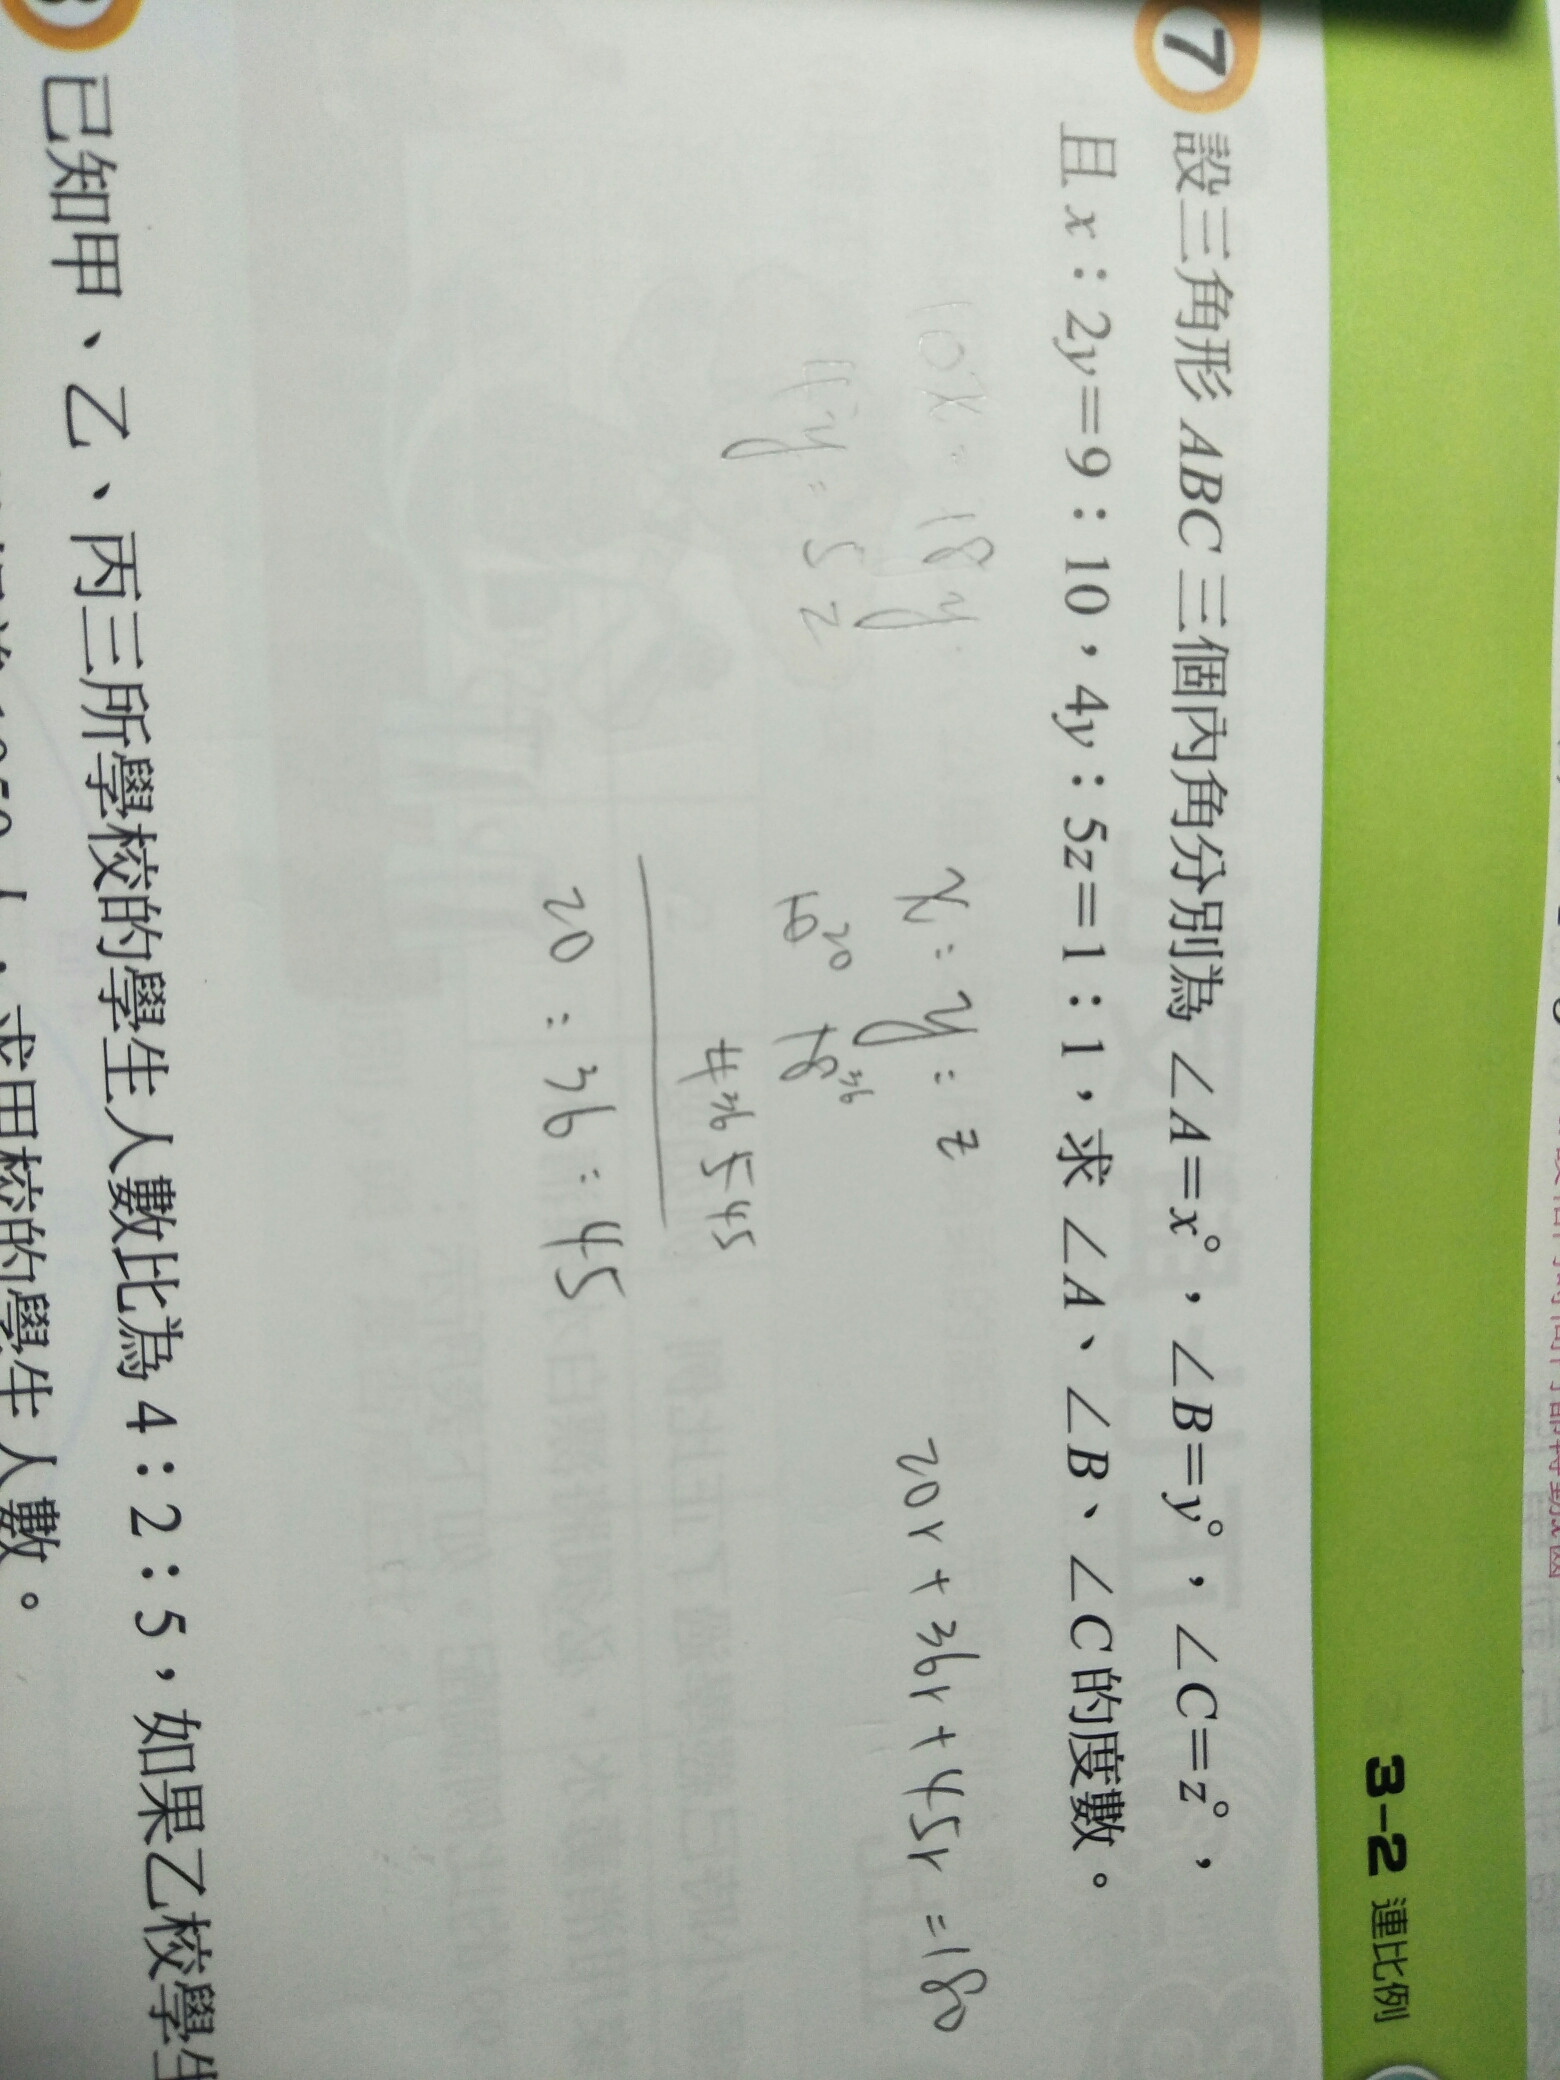 3-2 連比例
7 設三角形 ABC 三個內角分別為 ∠A=x°,∠B=y°,∠C=z°,
且 x:2y=9:10,4y:5z=1:1,求 ∠A、∠B、∠C 的度數。
10x=18y
4y=5z
x:y:z
10 20 18 36
4 36 5 45
20:36:45
20r+36r+45r=180
已知甲、乙、丙三所學校的學生人數比為 4:2:5,如果乙校學生
求甲校的學生人數。